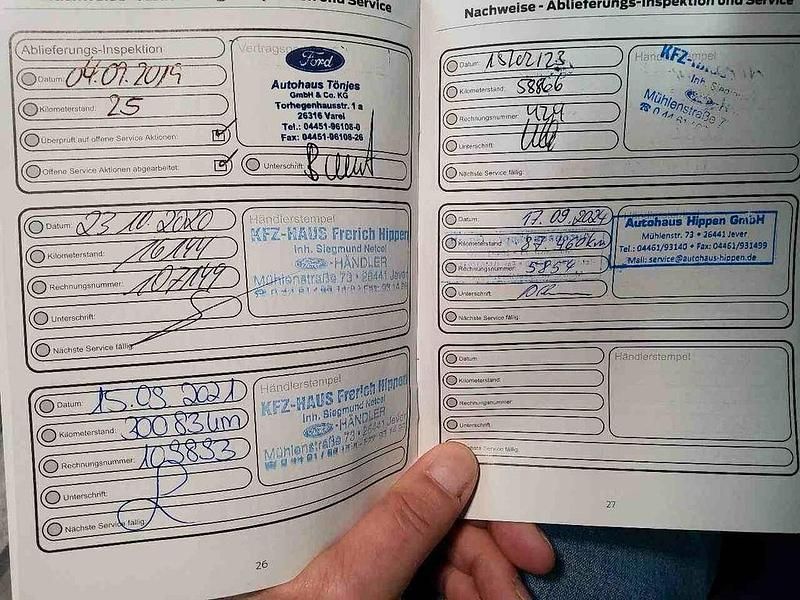 Nachweise - Ablieferungs-Inspektion und Service
Ablieferungs-Inspektion
Datum: 04.09.2019
Kilometerstand: 25
Überprüft auf offene Service Aktionen:
Offene Service Aktionen abgearbeitet:
Ford
Autohaus Tönjes
GmbH & Co. KG
Torhegenhausstr. 1 a
26316 Varel
Tel.: 04451-96108-0
Fax: 04451-96108-26
Unterschrift:
Datum: 23.10.2020
Kilometerstand: 16144
Rechnungsnummer: 107149
Unterschrift:
Nächste Service fällig:
Händlerstempel
KFZ-HAUS Frerich Hippen
Inh. Siegmund Netcel
Ford-HÄNDLER
Mühlenstraße 73 • 26441 Jever
Datum: 15.09.2021
Kilometerstand: 30083 km
Rechnungsnummer: 109833
Unterschrift:
Nächste Service fällig:
Händlerstempel
KFZ-HAUS Frerich Hippen
Inh. Siegmund Netcel
Ford-HÄNDLER
Mühlenstraße 73 • 26441 Jever
26
Nachweise - Ablieferungs-Inspektion und Service
Datum: 15/02/23
Kilometerstand: 58866
Rechnungsnummer: 424
Unterschrift:
Nächste Service fällig:
KFZ-
Inh.
Mühlenstraße 7
Datum: 17.09.2024
Kilometerstand:
Rechnungsnummer: 5854
Unterschrift:
Nächste Service fällig:
Autohaus Hippen GmbH
Mühlenstr. 73 • 26441 Jever
Tel.: 04461/93140 • Fax: 04461/931499
Mail: service@autohaus-hippen.de
Datum:
Kilometerstand:
Rechnungsnummer:
Unterschrift:
Service fällig:
Händlerstempel
27